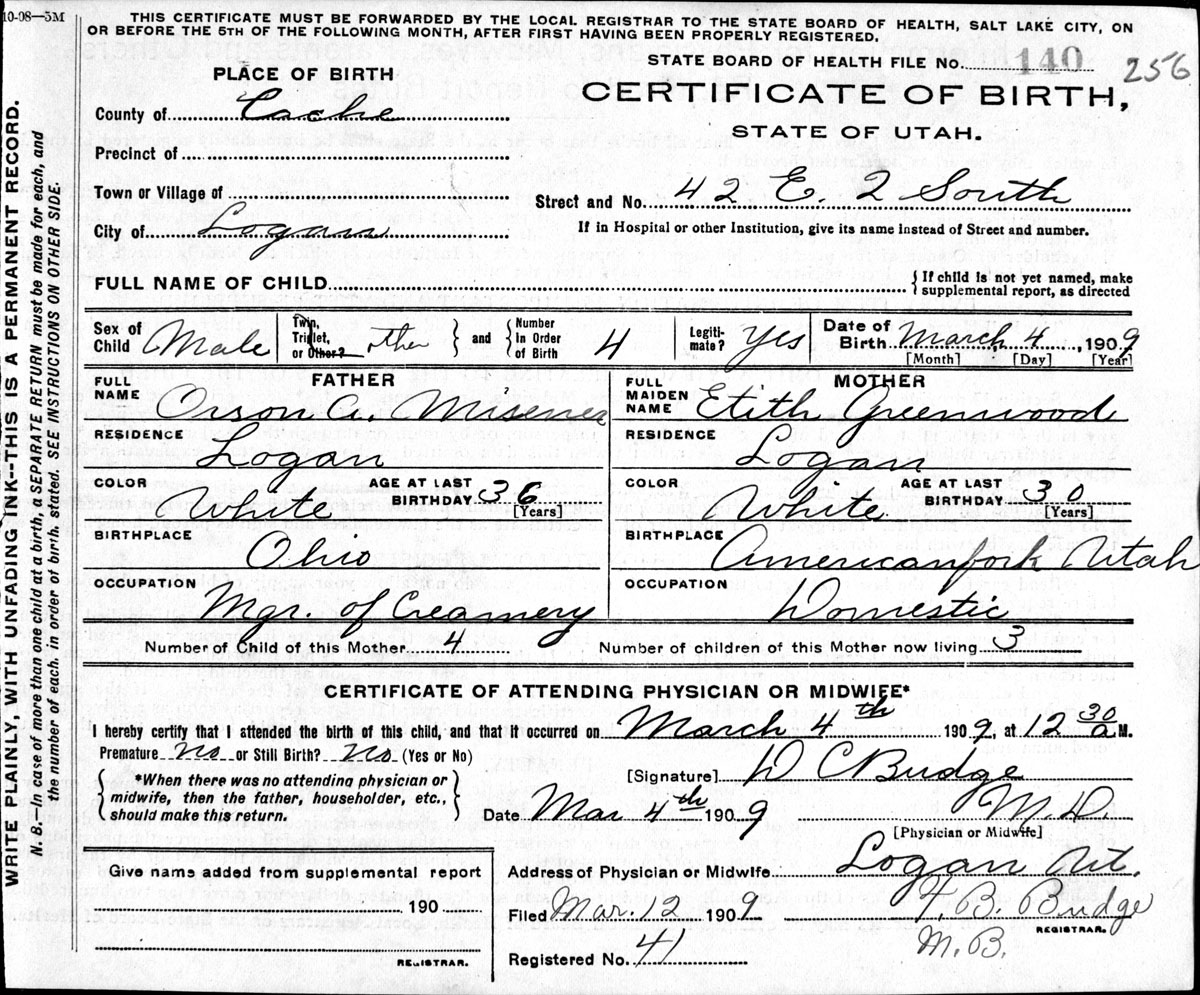 10-08—5M
THIS CERTIFICATE MUST BE FORWARDED BY THE LOCAL REGISTRAR TO THE STATE BOARD OF HEALTH, SALT LAKE CITY, ON
OR BEFORE THE 5TH OF THE FOLLOWING MONTH, AFTER FIRST HAVING BEEN PROPERLY REGISTERED.
STATE BOARD OF HEALTH FILE No. 140 256
PLACE OF BIRTH
CERTIFICATE OF BIRTH,
County of Cache
STATE OF UTAH.
Precinct of
Town or Village of
Street and No. 42 E. 2 South
City of Logan
If in Hospital or other Institution, give its name instead of Street and number.
FULL NAME OF CHILD
{If child is not yet named, make
supplemental report, as directed
Sex of Child Male
Twin, Triplet, or Other? other } and { Number In Order of Birth 4
Legiti- mate? Yes
Date of Birth March 4, 1909
[Month] [Day] [Year]
FATHER
FULL NAME Orson A.
RESIDENCE Logan
COLOR White AGE AT LAST BIRTHDAY 36 [Years]
BIRTHPLACE Ohio
OCCUPATION Mgr. of Creamery
MOTHER
FULL MAIDEN NAME Etith Greenwood
RESIDENCE Logan
COLOR White AGE AT LAST BIRTHDAY 30 [Years]
BIRTHPLACE Americanfork Utah
OCCUPATION Domestic
Number of Child of this Mother 4 Number of children of this Mother now living 3
CERTIFICATE OF ATTENDING PHYSICIAN OR MIDWIFE*
I hereby certify that I attended the birth of this child, and that it occurred on March 4th 1909, at 12 30 a M.
Premature no or Still Birth? no (Yes or No)
{*When there was no attending physician or
midwife, then the father, householder, etc.,
should make this return.}
[Signature] D C Budge
Date Mar 4th 1909 M.D.
[Physician or Midwife]
Give name added from supplemental report
190
REGISTRAR.
Address of Physician or Midwife Logan Ut.
Filed Mar. 12 1909 H. B. Budge
REGISTRAR.
M.B.
Registered No. 41
WRITE PLAINLY, WITH UNFADING INK--THIS IS A PERMANENT RECORD.
N. B.—In case of more than one child at a birth, a SEPARATE RETURN must be made for each, and
the number of each, in order of birth, stated. SEE INSTRUCTIONS ON OTHER SIDE.